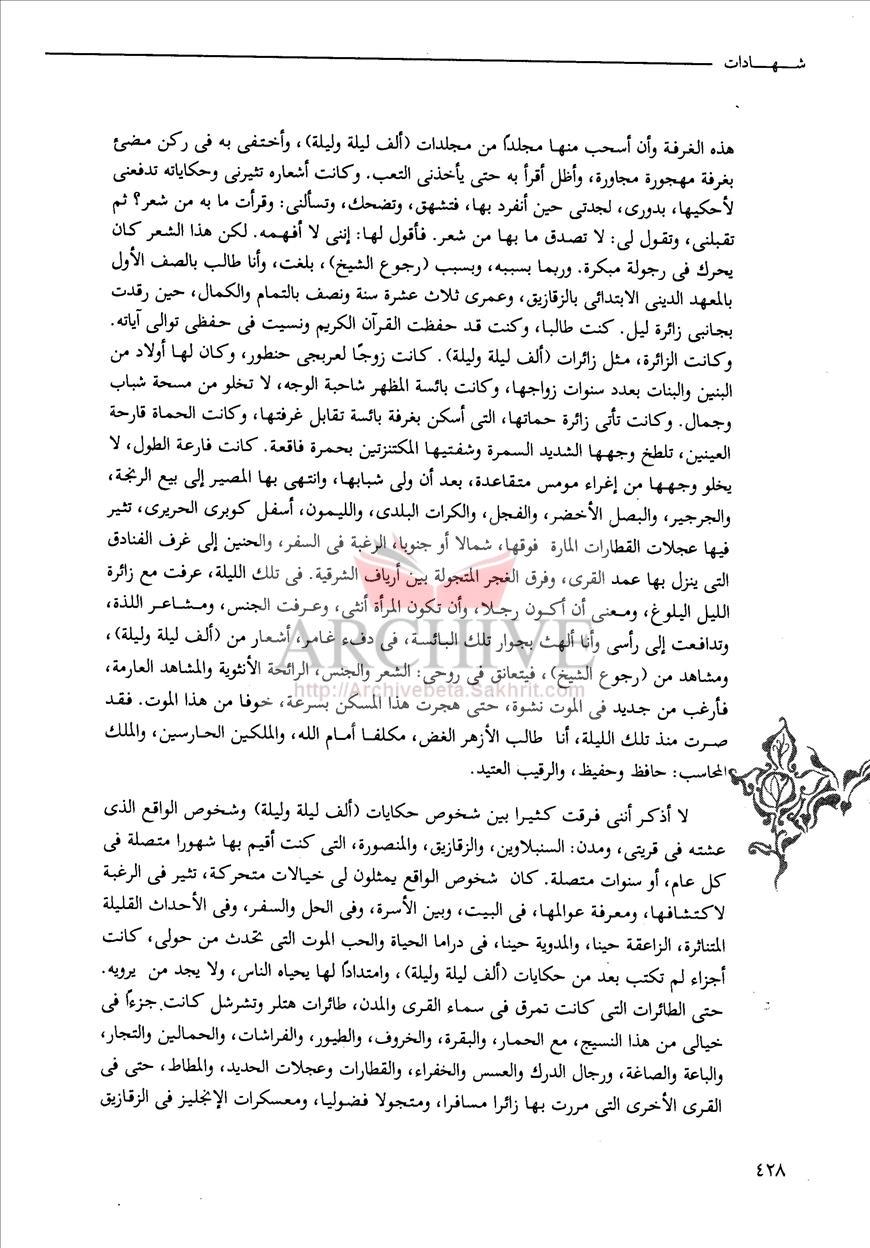 شـــهـــادات
هذه الغرفة وأن أسحب منها مجلدًا من مجلدات (ألف ليلة وليلة)، وأختفى به فى ركن مضئ
بغرفة مهجورة مجاورة، وأظل أقرأ به حتى يأخذنى التعب. وكانت أشعاره تثيرنى وحكاياته تدفعنى
لأحكيها، بدورى، لجدتى حين أنفرد بها، فتشهق، وتضحك، وتسألنى: وقرأت ما به من شعر؟ ثم
تقبلنى، وتقول لى: لا تصدق ما بها من شعر. فأقول لها: إننى لا أفهمه. لكن هذا الشعر كان
يحرك فى رجولة مبكرة. وربما بسببه، وبسبب (رجوع الشيخ)، بلغت، وأنا طالب بالصف الأول
بالمعهد الدينى الابتدائى بالزقازيق، وعمرى ثلاث عشرة سنة ونصف بالتمام والكمال، حين رقدت
بجانبى زائرة ليل. كنت طالبا، وكنت قد حفظت القرآن الكريم ونسيت فى حفظى توالى آياته.
وكانت الزائرة، مثل زائرات (ألف ليلة وليلة). كانت زوجًا لعربجى حنطور، وكان لها أولاد من
البنين والبنات بعدد سنوات زواجها، وكانت بائسة المظهر شاحبة الوجه، لا تخلو من مسحة شباب
وجمال. وكانت تأتى زائرة حماتها، التى أسكن بغرفة بائسة تقابل غرفتها، وكانت الحماة قارحة
العينين، تلطخ وجهها الشديد السمرة وشفتيها المكتنزتين بحمرة فاقعة. كانت فارعة الطول، لا
يخلو وجهها من إغراء مومس متقاعدة، بعد أن ولى شبابها، وانتهى بها المصير إلى بيع الرنجة،
والجرجير، والبصل الأخضر، والفجل، والكرات البلدى، والليمون، أسفل كوبرى الحريرى، تثير
فيها عجلات القطارات المارة فوقها، شمالا أو جنوبا، الرغبة فى السفر، والحنين إلى غرف الفنادق
التى ينزل بها عمد القرى، وفرق الغجر المتجولة بين أرياف الشرقية. فى تلك الليلة، عرفت مع زائرة
الليل البلوغ، ومعنى أن أكون رجلا، وأن تكون المرأة أنثى، وعرفت الجنس، ومشاعر اللذة،
وتدافعت إلى رأسى وأنا ألهث بجوار تلك البائسة، فى دفء غامر، أشعار من (ألف ليلة وليلة)،
ومشاهد من (رجوع الشيخ)، فيتعانق فى روحى: الشعر والجنس، الرائحة الأنثوية والمشاهد العارمة،
فأرغب من جديد فى الموت نشوة، حتى هجرت هذا المسكن بسرعة، خوفا من هذا الموت. فقد
صرت منذ تلك الليلة، أنا طالب الأزهر الغض، مكلفا أمام الله، والملكين الحارسين، والملك
المحاسب: حافظ وحفيظ، والرقيب العتيد.
لا أذكر أننى فرقت كثيرا بين شخوص حكايات (ألف ليلة وليلة) وشخوص الواقع الذى
عشته فى قريتى، ومدن: السنبلاوين، والزقازيق، والمنصورة، التى كنت أقيم بها شهورا متصلة فى
كل عام، أو سنوات متصلة. كان شخوص الواقع يمثلون لى خيالات متحركة، تثير فى الرغبة
لاكتشافها، ومعرفة عوالمها، فى البيت، وبين الأسرة، وفى الحل والسفر، وفى الأحداث القليلة
المتناثرة، الزاعقة حينا، والمدوية حينا، فى دراما الحياة والحب الموت التى تحدث من حولى، كانت
أجزاء لم تكتب بعد من حكايات (ألف ليلة وليلة)، وامتدادًا لها يحياه الناس، ولا يجد من يرويه.
حتى الطائرات التى كانت تمرق فى سماء القرى والمدن، طائرات هتلر وتشرشل كانت جزءًا فى
خيالى من هذا النسيج، مع الحمار، والبقرة، والخروف، والطيور، والفراشات، والحمالين والتجار،
والباعة والصاغة، ورجال الدرك والعسس والخفراء، والقطارات وعجلات الحديد، والمطاط، حتى فى
القرى الأخرى التى مررت بها زائرا مسافرا، ومتجولا فضوليا، ومعسكرات الإنجليز فى الزقازيق
٤٢٨
ARCHIVE
http://Archivebeta.Sakhrit.com